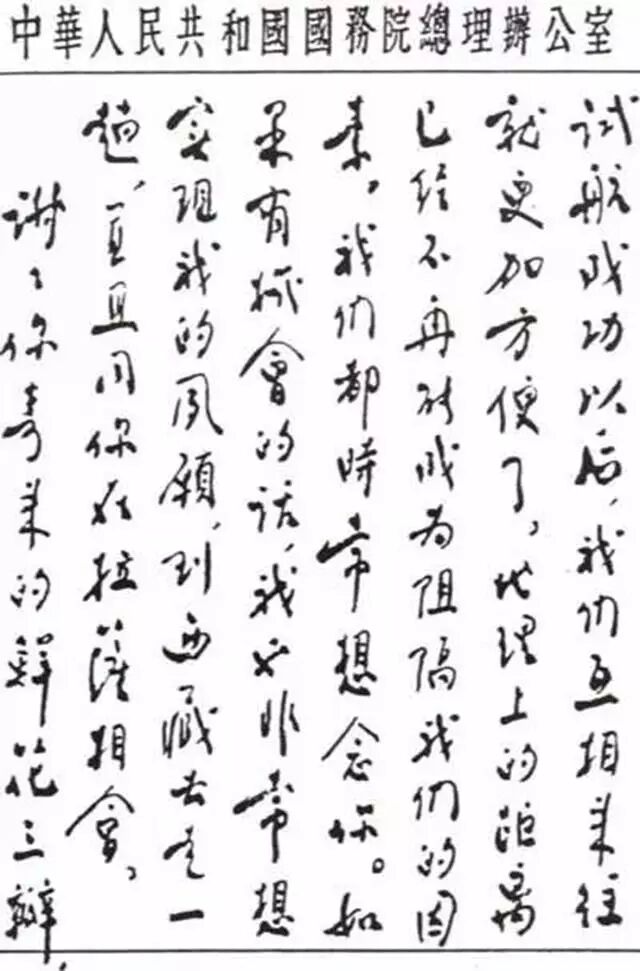 中華人民共和國國務院總理辦公室
试航成功以后，我们互相来往
就更加方便了。地理上的距离
已经不再能成为阻隔我们的因
素。我们都時常想念你。如
果有机會的话，我也非常想
实现我的夙愿，到西藏去走一
趟，並且同你在拉薩相會。
谢之你寄来的鲜花三瓣，